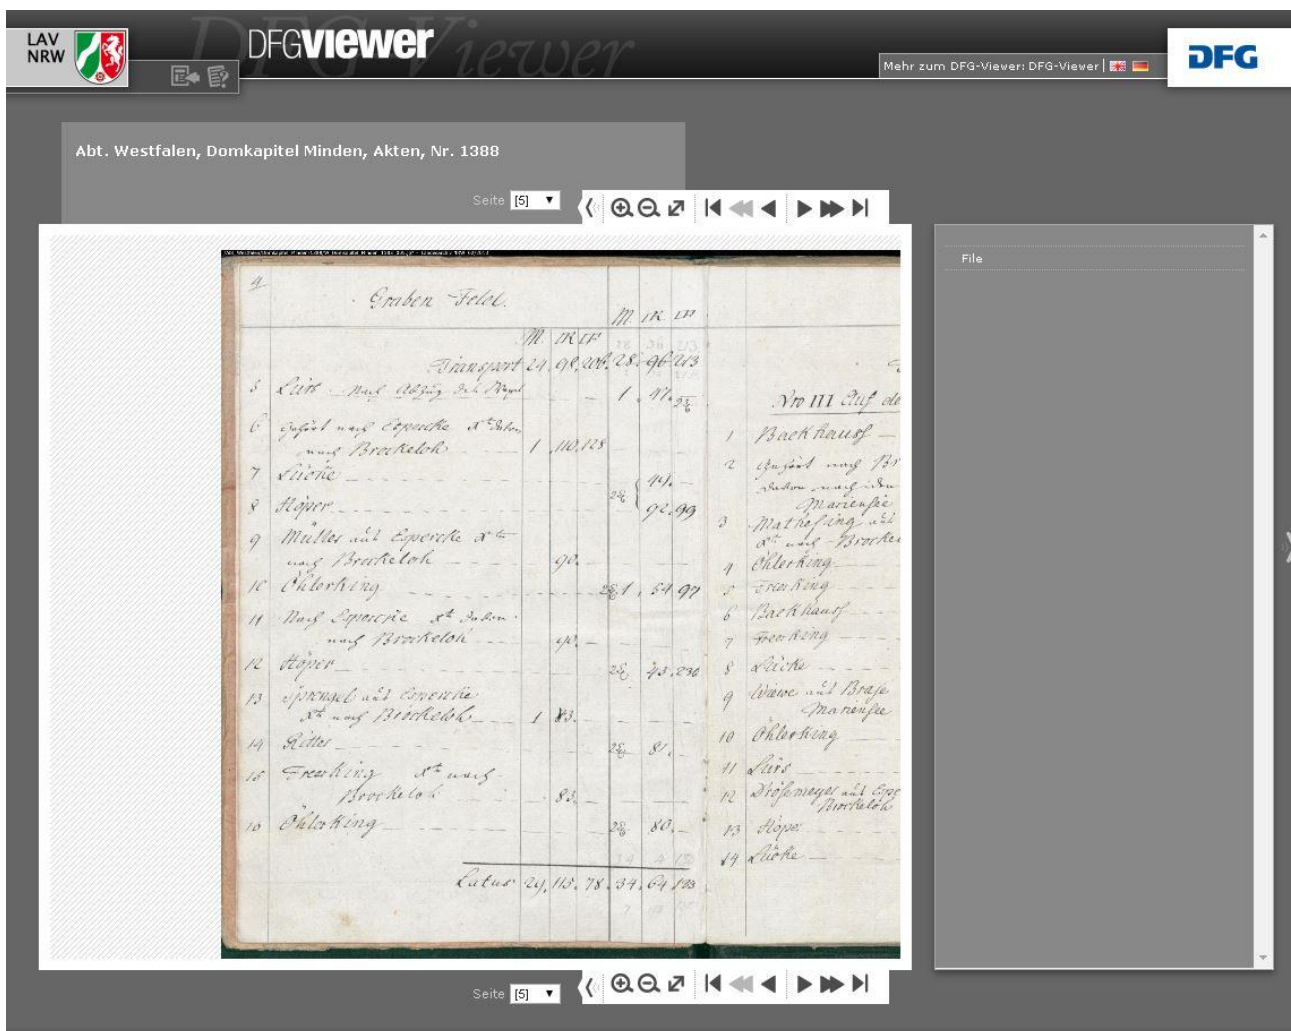 LAV
NRW
DFG Viewer
DFGVIEWER
Mehr zum DFG-Viewer: DFG-Viewer
DFG
Abt. Westfalen, Domkapitel Minden, Akten, Nr. 1388
Seite [5]
File
Graben Feld.
M. IR. IF
M. IR IF
Transport 24. 98. 206. 28. 96 213
5 Lürs nach Abzug des 1. 47.
6 Gehört nach Esperke
nach Brockeloh 1. 110. 128
7 Lücke 44.
8 Höper 92. 99
9 Müller aus Espercke
nach Brockeloh 90.
10 Öhlerking 1. 54 97
11 Nach Espercke davon
nach Brockeloh 90.
12 Höper 43. 236
13 Sprengel aus Espercke
nach Brockeloh 1 83.
14 Ritter 81.
15 Freerking nach
Brockeloh 83.
16 Öhlerking 80.
Latus 29. 115. 78. 34. 64 133
Nro III Auf de
1 Backhauss
2 Gehört nach Br
davon nach
Mariensee
3 Mathesing aus
nach Brockel
4 Öhlerking
5 Freerking
6 Backhauss
7 Freerking
8 Lücke
9 Wiewe aus Brase
Mariensee
10 Öhlerking
11 Lürs
12 Drössmeyer aus Espe
Brockeloh
13 Höper
14 Lücke
Seite [5]